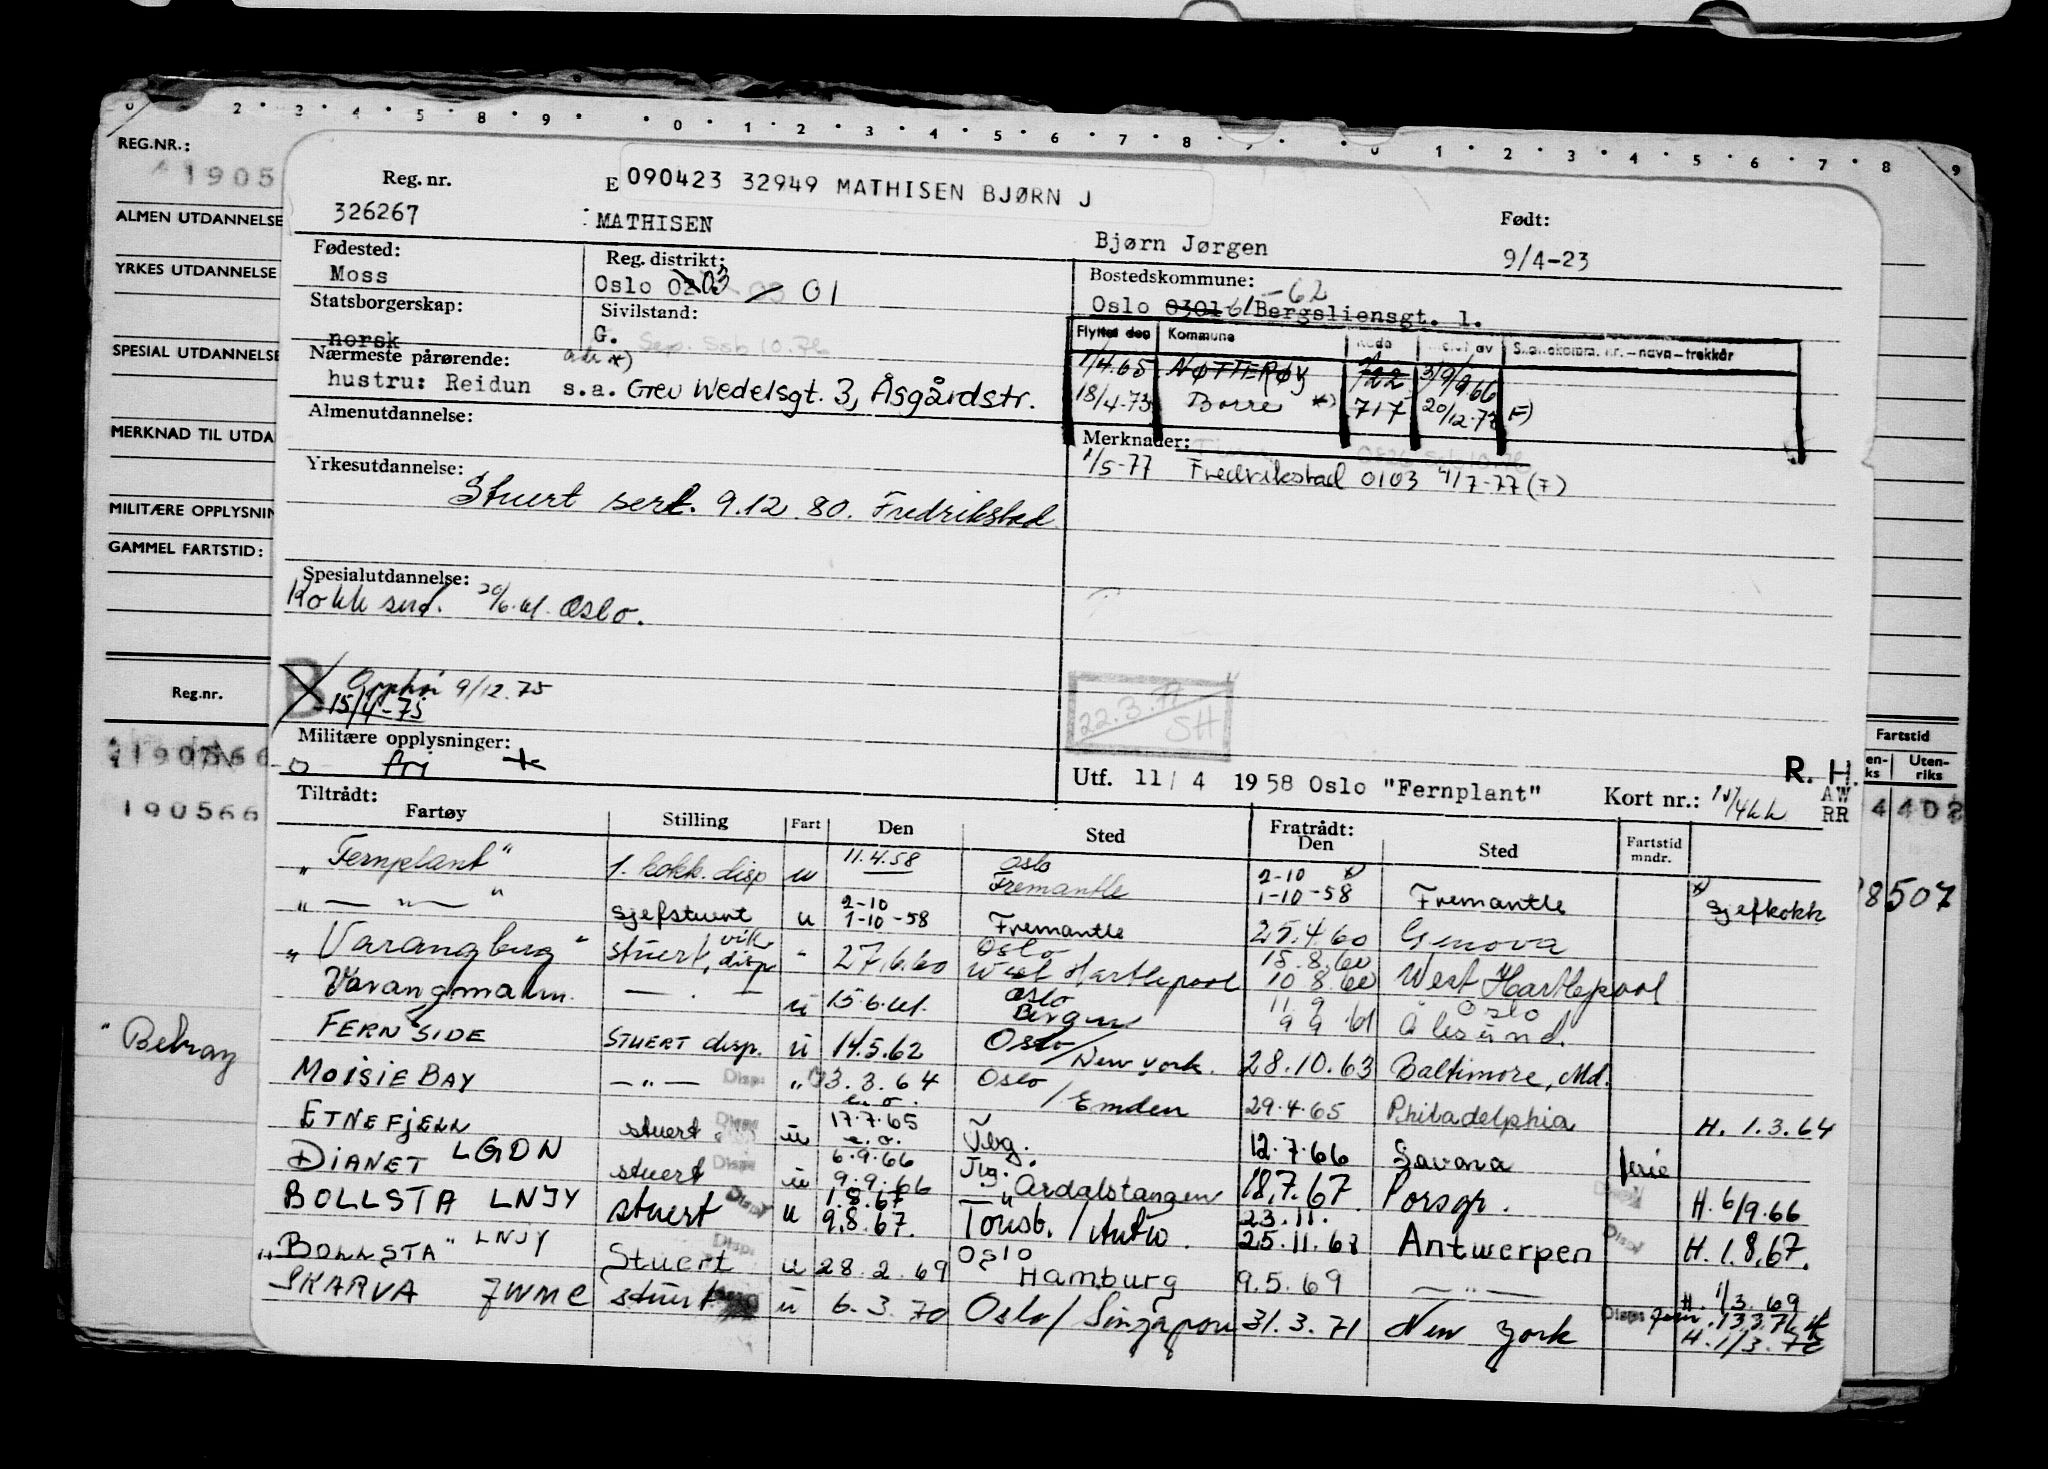 0 . 2 . 3 . 4 . 5 . 8 . 9 . . 0 . 1 . 2 . 3 . 4 . 5 . 6 . 7 . 8 . 0 . 1 . 2 . 3 . 4 . 5 . 6 . 7 . 8 . 9
REG.NR.:
1905
ALMEN UTDANNELSE
YRKES UTDANNELSE
SPESIAL UTDANNELSE
MERKNAD TIL UTDA
MILITÆRE OPPLYSNIN
GAMMEL FARTSTID:
Reg.nr.
190566
190566
"Behray
Reg. nr.
E 090423 32949 MATHISEN BJØRN J
326267
: MATHISEN
Bjørn Jørgen
Født:
9/4-23
Fødested:
Moss
Reg. distrikt:
Oslo 03 / 01
Bostedskommune: -62
Oslo 0301 61 Bergsliensgt. 1.
Statsborgerskap:
norsk
Sivilstand:
G. Sep. Ssb 10.76
Flyttet den Kommune Kode Meld. av S..enekomm. nr.-navn-trekkår
1/4.65 NØTTERØY 722 3/9/66
18/4.73 Borre *) 717 20/12.72 F)
Nærmeste pårørende: adr *)
hustru: Reidun s.a. Grev Wedelsgt. 3, Åsgårdstr.
Almenutdannelse:
Merknader:
1/5-77 Fredrikstad 0103 4/7-77 (F)
Yrkesutdannelse:
Stuert sert. 9.12.80. Fredrikstad
Spesialutdannelse:
Kokk sert. 20/6.61. Oslo.
B
9/12.75
15/4-75
22.3.77
SH
Militære opplysninger:
o fri
Utf. 11/4 1958 Oslo "Fernplant"
Kort nr.:
R. H.
AW
RR
Fartstid
en-ks Uten-riks
4 402
8507
Tiltrådt:
Fartøy Stilling Fart Den Sted Fratrådt: Den Sted Fartstid mndr.
"Fernplant" 1. kokk. disp u 11.4.58 Oslo Fremantle 2-10 *) 1-10-58 Fremantle *) Sjefkokk
" — " — " Sjefstuert u 2-10 1-10-58 Fremantle 25.4.60 Genova
"Varangberg" stuert, vik disp " 27.6.60 Oslo West Hartlepool 15.8.60 10.8.60 West Hartlepool
Varangmalm — . — u 15.6.61. Oslo Bergen 11 9 9 9 61 Oslo Ålesund.
FERNSIDE STUERT disp. u 14.5.62 Oslo/New York. 28.10.63 Baltimore, Md.
MOISIE BAY — " — Disp. " 3.3.64 Oslo / Emden 29.4.65 Philadelphia H. 1.3.64
ETNEFJELL stuert u 17.7.65 Tbg. 12.7.66 Savona ferie
DIANET LGDN stuert Disp. u 6.9.66 9.9.66 Tbg. Årdalstangen 18.7.67 Porsgr. H. 6/9.66
BOLLSTA LNJY stuert Disp. u 1.8.67 9.8.67. Tønsb. / Antw. 23.11. 25.11.68 Antwerpen Disp. H. 1.8.67.
"BOLLSTA" LNJY Stuert Disp. u 28.2.69 Oslo Hamburg 9.5.69 — " — H. 1/3.69
SKARVA JWMC stuert u 6.3.70 Oslo / Singapore 31.3.71 New York Disp. H. 1/3.70